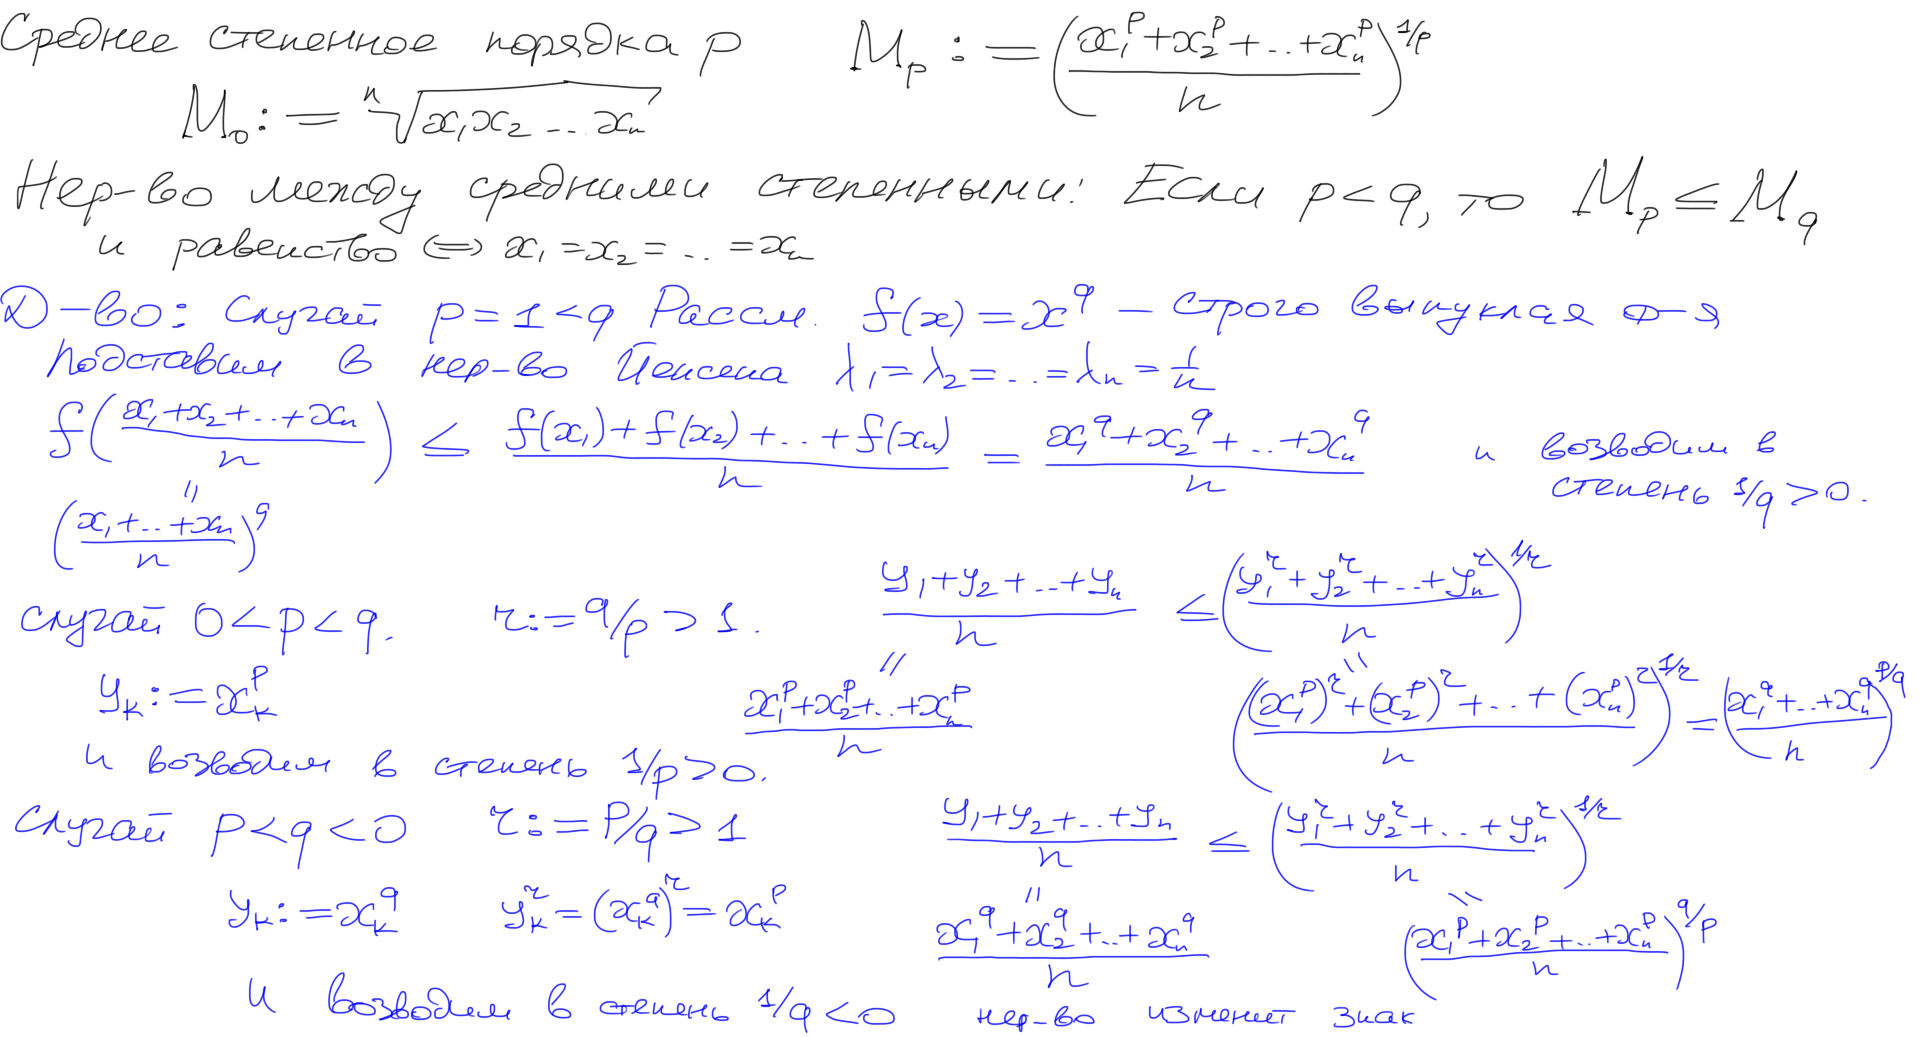 Среднее степенное порядка p M_p := ((x_1^p + x_2^p + ... + x_n^p)/n)^{1/p}
M_0 := \sqrt[n]{x_1 x_2 ... x_n}
Нер-во между средними степенными: Если p < q, то M_p ≤ M_q
и равенство ⇔ x_1 = x_2 = ... = x_n
Д-во: Случай p = 1 < q Рассм. f(x) = x^q – строго выпуклая ф-я
Подставим в нер-во Йенсена λ_1 = λ_2 = ... = λ_n = 1/n
f((x_1 + x_2 + ... + x_n)/n) ≤ (f(x_1) + f(x_2) + ... + f(x_n))/n = (x_1^q + x_2^q + ... + x_n^q)/n и возводим в
степень 1/q > 0.
=
((x_1 + ... + x_n)/n)^q
Случай 0 < p < q. r := q/p > 1. (y_1 + y_2 + ... + y_n)/n ≤ ((y_1^r + y_2^r + ... + y_n^r)/n)^{1/r}
= =
y_k := x_k^p (x_1^p + x_2^p + ... + x_n^p)/n (((x_1^p)^r + (x_2^p)^r + ... + (x_n^p)^r)/n)^{1/r} = ((x_1^q + ... + x_n^q)/n)^{p/q}
и возводим в степень 1/p > 0.
Случай p < q < 0 r := p/q > 1 (y_1 + y_2 + ... + y_n)/n ≤ ((y_1^r + y_2^r + ... + y_n^r)/n)^{1/r}
= =
y_k := x_k^q y_k^r = (x_k^q)^r = x_k^p (x_1^q + x_2^q + ... + x_n^q)/n ((x_1^p + x_2^p + ... + x_n^p)/n)^{q/p}
и возводим в степень 1/q < 0 нер-во изменит знак